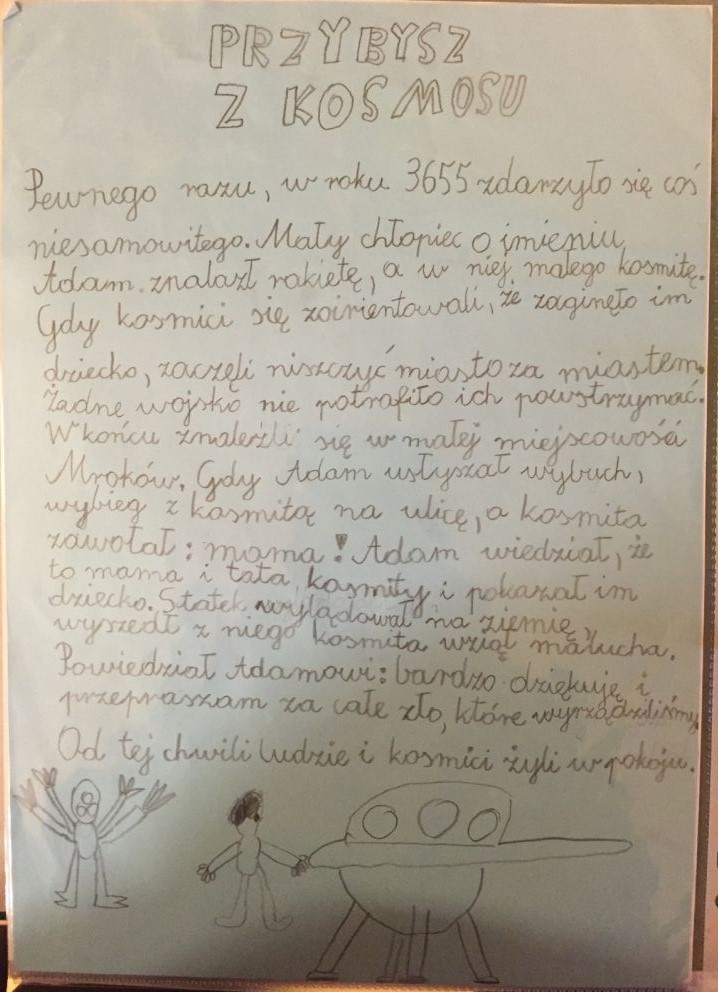 PRZYBYSZ
Z KOSMOSU
Pewnego razu, w roku 3655 zdarzyło się coś
niesamowitego. Mały chłopiec o imieniu
Adam. znalazł rakietę, a w niej małego kosmitę.
Gdy kosmici się zoirientowali, że zaginęło im
dziecko, zaczęli niszczyć miasto za miastem.
Żadne wojsko nie potrafiło ich powstrzymać.
W końcu znaleźli się w małej miejscowości
Mroków. Gdy Adam usłyszał wybuch,
wybieg z kosmitą na ulicę, a kosmita
zawołał: mama! Adam wiedział, że
to mama i tata kosmity i pokazał im
dziecko. Statek wylądował na ziemię,
wyszedł z niego kosmita wziął malucha.
Powiedział Adamowi: bardzo dziękuję i
przepraszam za całe zło, które wyrządziliśmy.
Od tej chwili ludzie i kosmici żyli w pokoju.